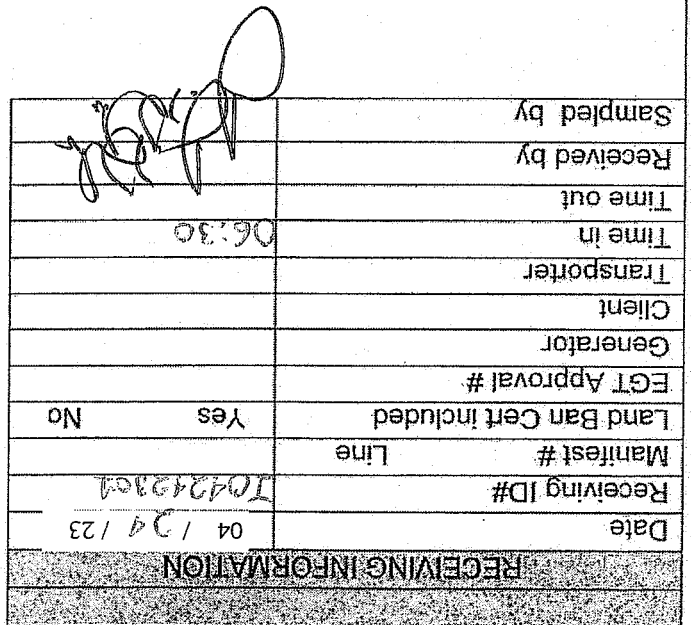 RECEIVING INFORMATION
Date 04 / 24 / 23
Receiving ID# I04242301
Manifest # Line
Land Ban Cert included Yes No
EGT Approval #
Generator
Client
Transporter
Time in 06:30
Time out
Received by
Sampled by